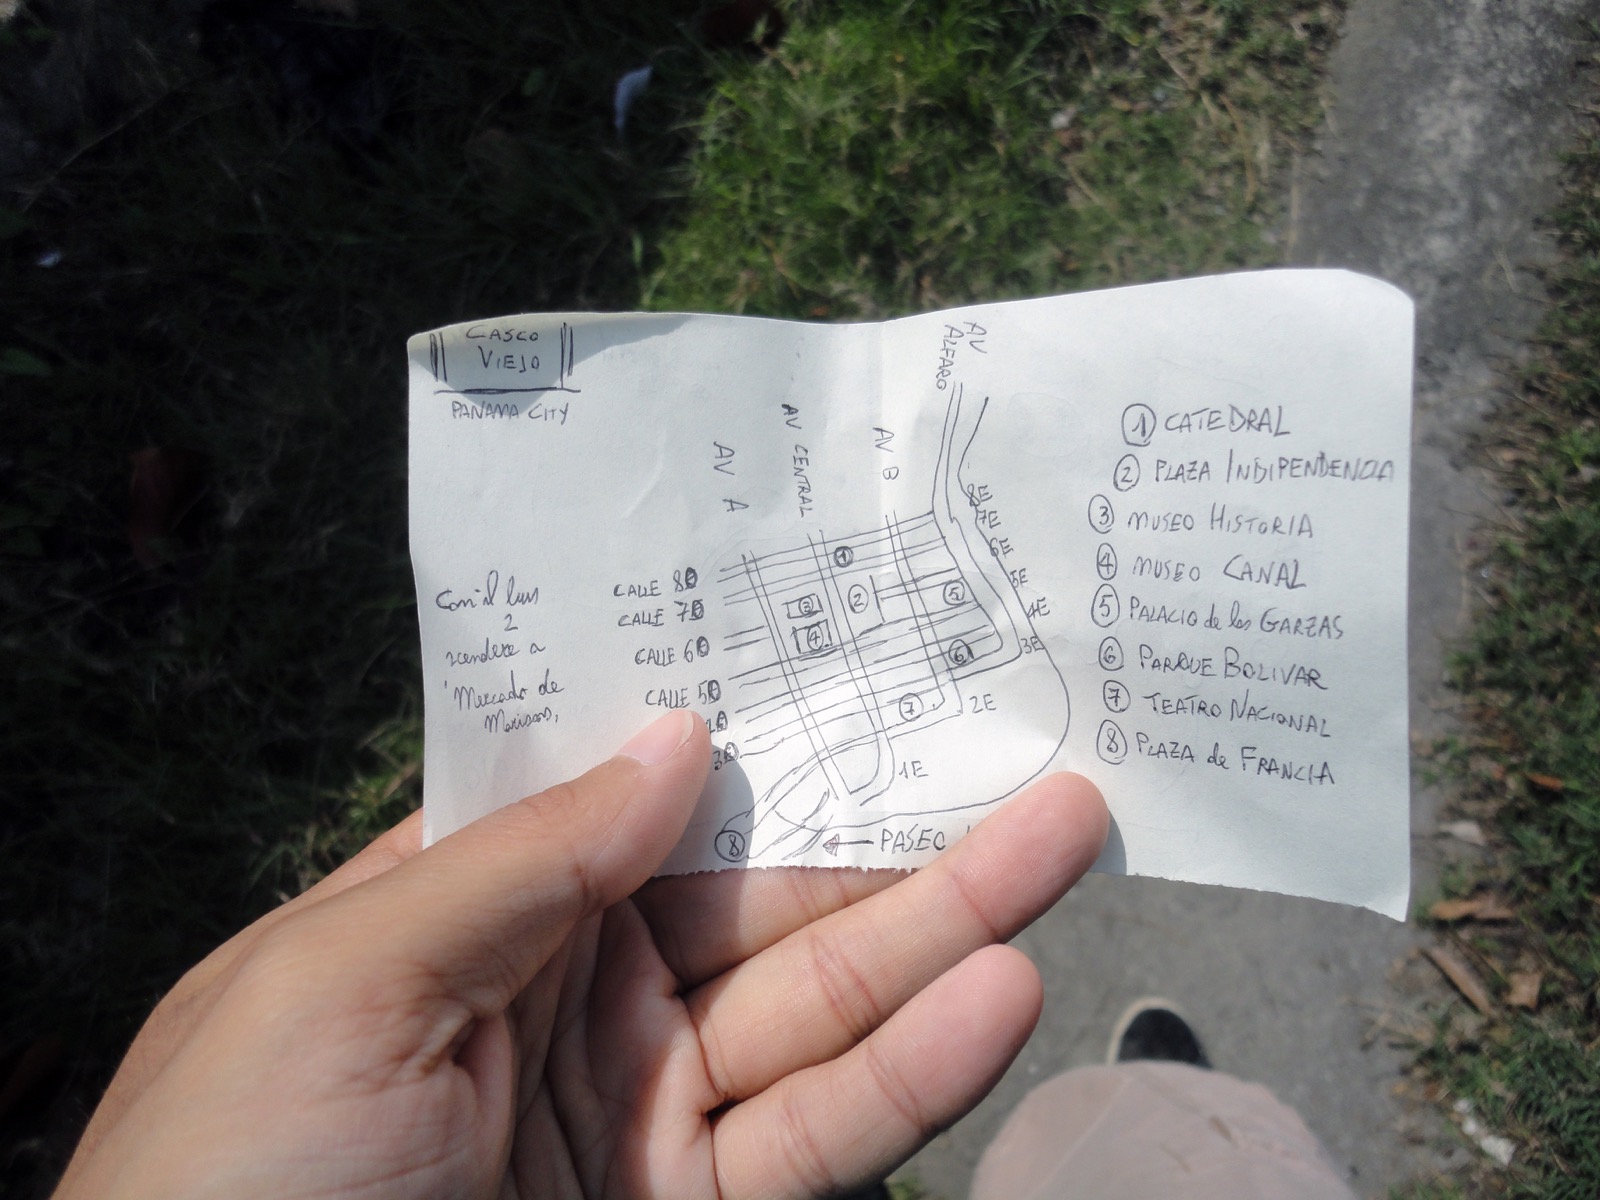 CASCO
VIEJO
PANAMA CITY
AV
ALFARO
AV CENTRAL
AV B
AV A
1 CATEDRAL
2 PLAZA INDIPENDENCIA
3 MUSEO HISTORIA
4 MUSEO CANAL
5 PALACIO de los GARZAS
6 PARQUE BOLIVAR
7 TEATRO NACIONAL
8 PLAZA de FRANCIA
8E
7E
6E
5E
4E
3E
2E
1E
CALLE 8
CALLE 7
CALLE 6
CALLE 5
3
1
2
3
4
5
6
7
8
2
scendere a
Mercado de
PASEO